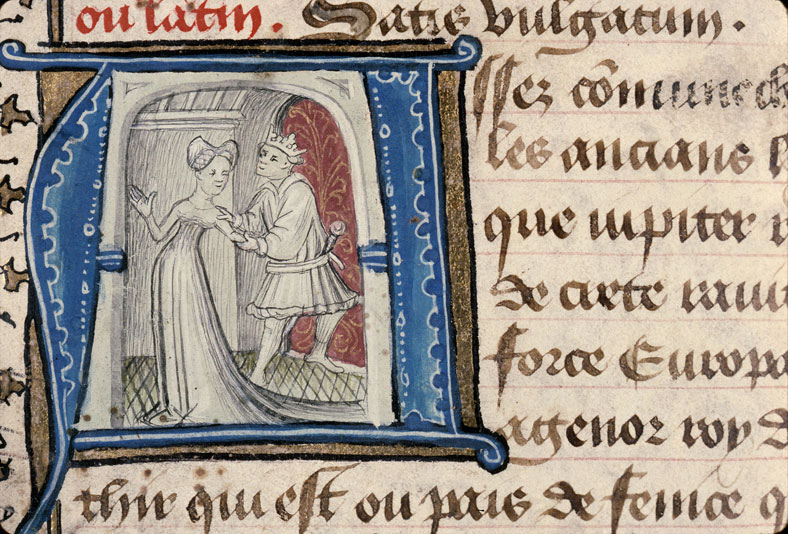 ou latin. Satis vulgatum.
Assez com̄une ch
les ancians l
que iupiter
de crete raui
force Europa
agenor roy d
thir qui est ou pais de fenice q